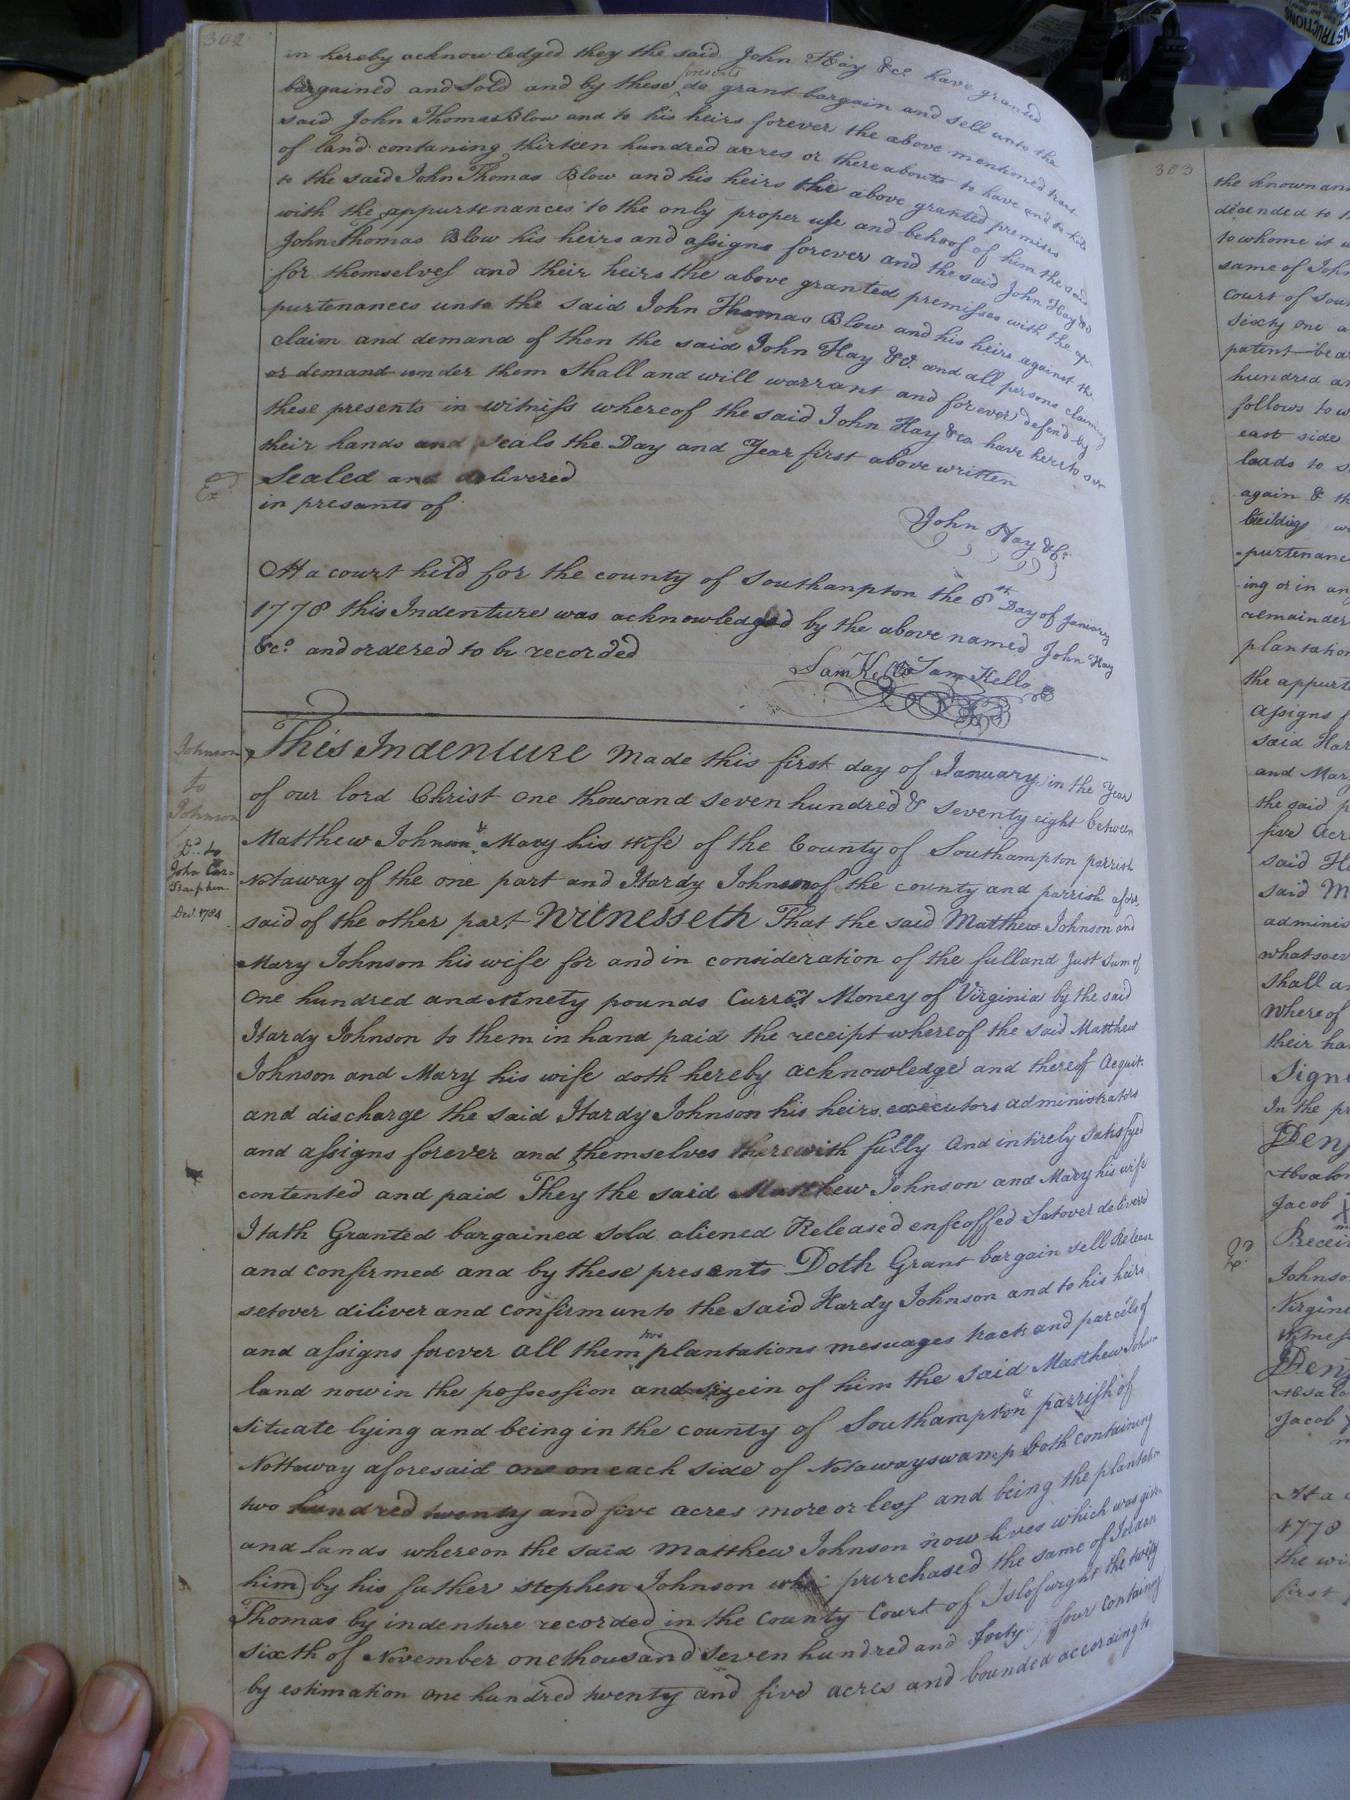 302
in hereby acknowledged they the said John Hay &c. have granted
bargained and sold and by these presents do grant bargain and sell unto the
said John Thomas Blow and to his heirs forever the above mentioned tract
of land contaning thirteen hundred acres or thereabouts to have and to hold
to the said John Thomas Blow and his heirs the above granted premises
with the appurtenances to the only proper use and behoof of him the said
John Thomas Blow his heirs and assigns forever and the said John Hay &c
for themselves and their heirs the above granted premisses with the ap-
purtenances unto the said John Thomas Blow and his heirs against the
claim and demand of then the said John Hay &c. and all persons claiming
or demand under them shall and will warrant and forever defend by
these presents in witness whereof the said John Hay &co have hereto set
their hands and seals the Day and Year first above written
Sealed and delivered
Exd.
in presants of
John Hay &c.
At a court held for the county of Southampton the 8th Day of January
1778 this Indenture was acknowledged by the above named John Hay
&co. and ordered to be recorded
Sam Kello Sam Kello
Johnson
to
Johnson
Dd. to
John Car=
Dec. 1784
This Indenture Made this first day of January in the Year
of our lord Christ One thousand seven hundred & seventy eight between
Matthew Johnson & Mary his wife of the County of Southampton parrish
Notaway of the one part and Hardy Johnson of the county and parrish afore
said of the other part Witnesseth That the said Matthew Johnson and
Mary Johnson his wife for and in consideration of the full and Just sum of
One hundred and Ninety pounds Currant Money of Virginia by the said
Hardy Johnson to them in hand paid the receipt whereof the said Matthew
Johnson and Mary his wife doth hereby acknowledge and thereof acquit
and discharge the said Hardy Johnson his heirs executors administrators
and assigns forever and themselves therewith fully And intirely satisfyed
contented and paid They the said Matthew Johnson and Mary his wife
Hath Granted bargained sold aliened Released enfeoffed Setover delivered
and confirmed and by these presents Doth Grant bargain sell Release
setover diliver and confirm unto the said Hardy Johnson and to his heirs
and assigns forever all them two plantations mesuages track and parcels of
land now in the possession and sizein of him the said Matthew Johnson
situate lying and being in the county of Southampton & parrish of
Nottoway aforesaid one on each side of Notawayswamp Both containing
two hundred twenty and five acres more or less and being the plantation
and lands whereon the said Matthew Johnson now lives which was given
him by his father stephen Johnson who purchased the same of Jordan
Thomas by indenture recorded in the County Court of Isle of wight the twenty
sixth of November one thousand seven hundred and forty four containing
by estimation one hundred twenty and five acres and bounded according to
303
the known
decended to
to whome it
same of John
court of
sixty one
patent
hundred
follows
east side
leads to
again & th
buildings
purtenanc
ing or in an
remainder
plantation
the appurt
assigns
said Har
and Mary
the said
five acr
said H
said M
adminis
whatsoev
shall an
whereof
their ha
Signe
In the pr
Absalom
Jacob
Exd.
Receiv
Johnson
Virgini
Jacob
At a
1778
the wi
first